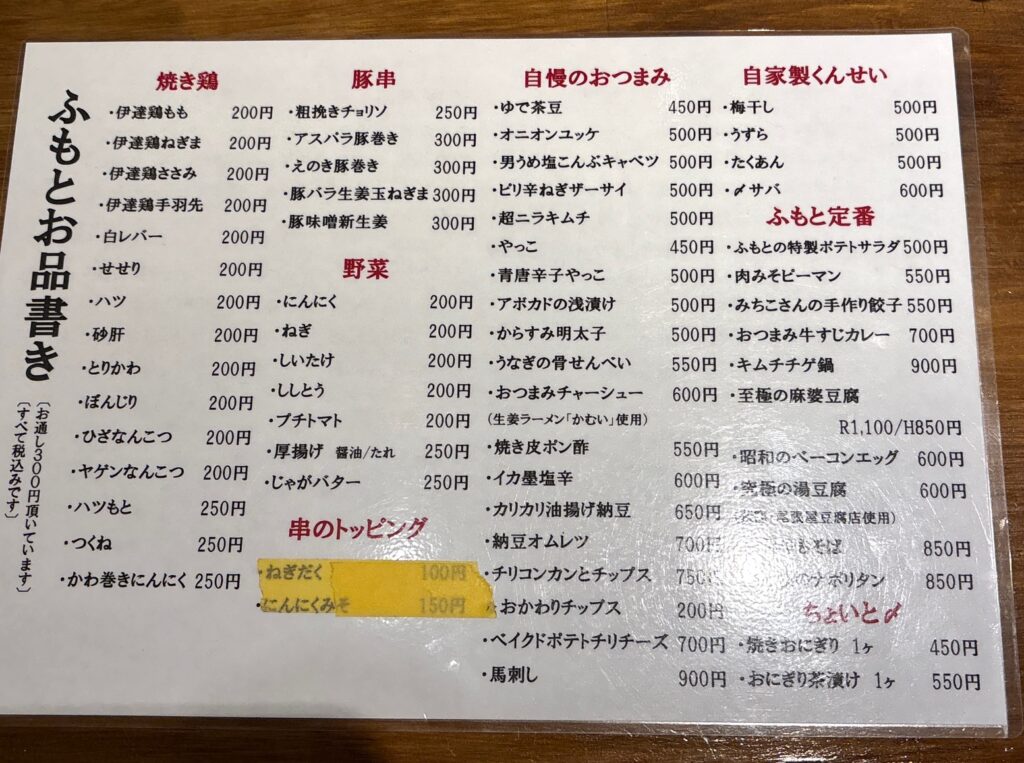 ふもとお品書き
〔お通し300円頂いています〕
〔すべて税込みです〕
焼き鶏
・伊達鶏もも 200円
・伊達鶏ねぎま 200円
・伊達鶏ささみ 200円
・伊達鶏手羽先 200円
・白レバー 200円
・せせり 200円
・ハツ 200円
・砂肝 200円
・とりかわ 200円
・ぼんじり 200円
・ひざなんこつ 200円
・ヤゲンなんこつ 200円
・ハツもと 250円
・つくね 250円
・かわ巻きにんにく 250円
豚串
・粗挽きチョリソ 250円
・アスパラ豚巻き 300円
・えのき豚巻き 300円
・豚バラ生姜玉ねぎま 300円
・豚味噌新生姜 300円
野菜
・にんにく 200円
・ねぎ 200円
・しいたけ 200円
・ししとう 200円
・プチトマト 200円
・厚揚げ 醤油/たれ 250円
・じゃがバター 250円
串のトッピング
・ねぎだく 100円
・にんにくみそ 150円
自慢のおつまみ
・ゆで茶豆 450円
・オニオンユッケ 500円
・男うめ塩こんぶキャベツ 500円
・ピリ辛ねぎザーサイ 500円
・超ニラキムチ 500円
・やっこ 450円
・青唐辛子やっこ 500円
・アボカドの浅漬け 500円
・からすみ明太子 500円
・うなぎの骨せんべい 550円
・おつまみチャーシュー 600円
(生姜ラーメン「かむい」使用)
・焼き皮ポン酢 550円
・イカ墨塩辛 600円
・カリカリ油揚げ納豆 650円
・納豆オムレツ 700円
・チリコンカンとチップス 750円
・おかわりチップス 200円
・ベイクドポテトチリチーズ 700円
・馬刺し 900円
自家製くんせい
・梅干し 500円
・うずら 500円
・たくあん 500円
・〆サバ 600円
ふもと定番
・ふもとの特製ポテトサラダ 500円
・肉みそピーマン 550円
・みちこさんの手作り餃子 550円
・おつまみ牛すじカレー 700円
・キムチチゲ鍋 900円
・至極の麻婆豆腐
R1,100/H850円
・昭和のベーコンエッグ 600円
・究極の湯豆腐 600円
尾張屋豆腐店使用)
そば 850円
ナポリタン 850円
ちょいと〆
・焼きおにぎり 1ヶ 450円
・おにぎり茶漬け 1ヶ 550円